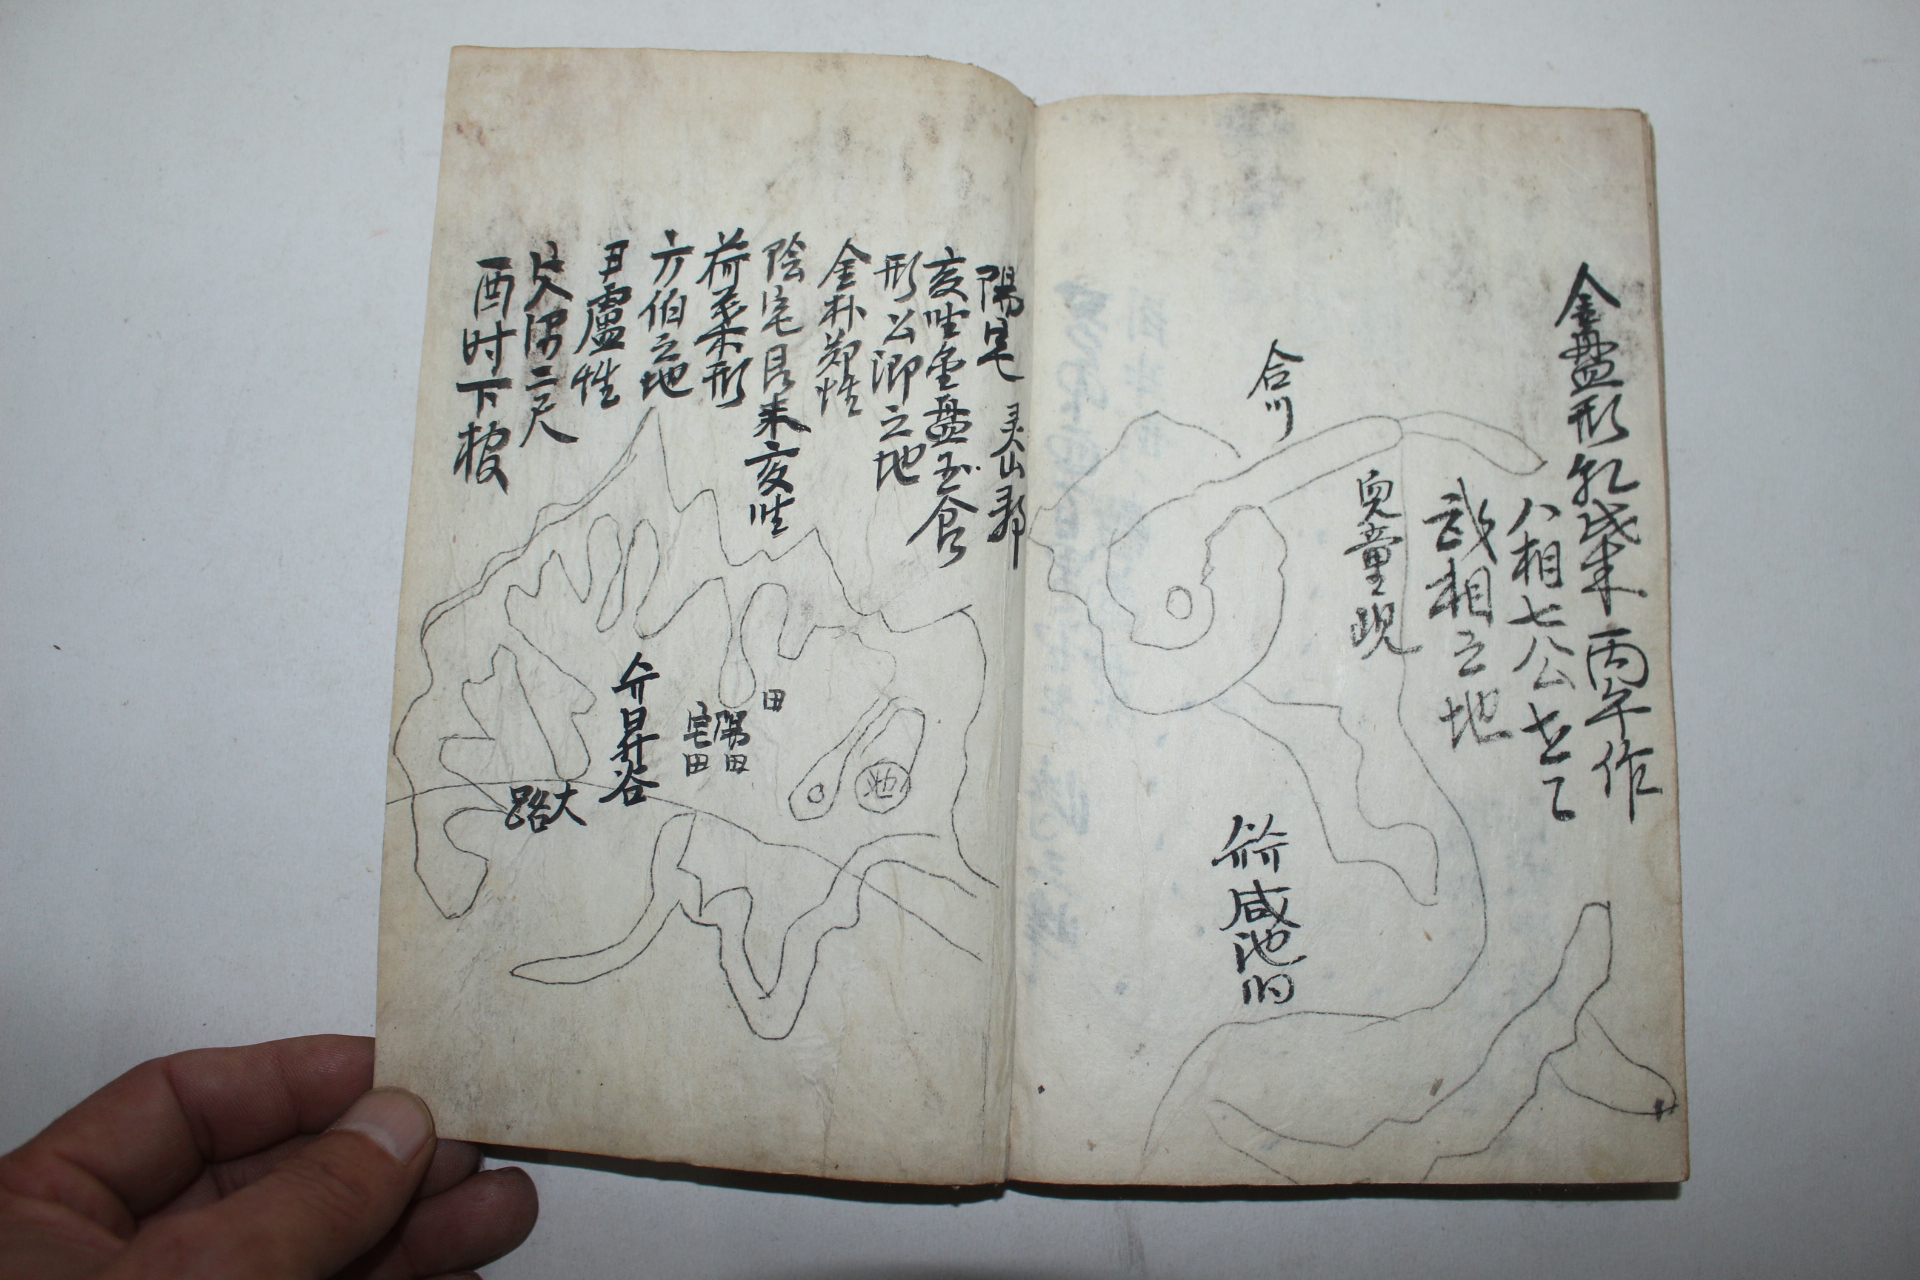 金盤形乾來丙午作
八相七公之
武相之地
合川
兒童峴
咸池
陽宅 灵山郡
亥坐金盤玉食
形公卿之地
金朴鄭性
陰宅艮來亥坐
荷葉形
方伯之地
尹盧性
穴深二尺
酉时下棺
田
陽田
宅田
昇谷
大路